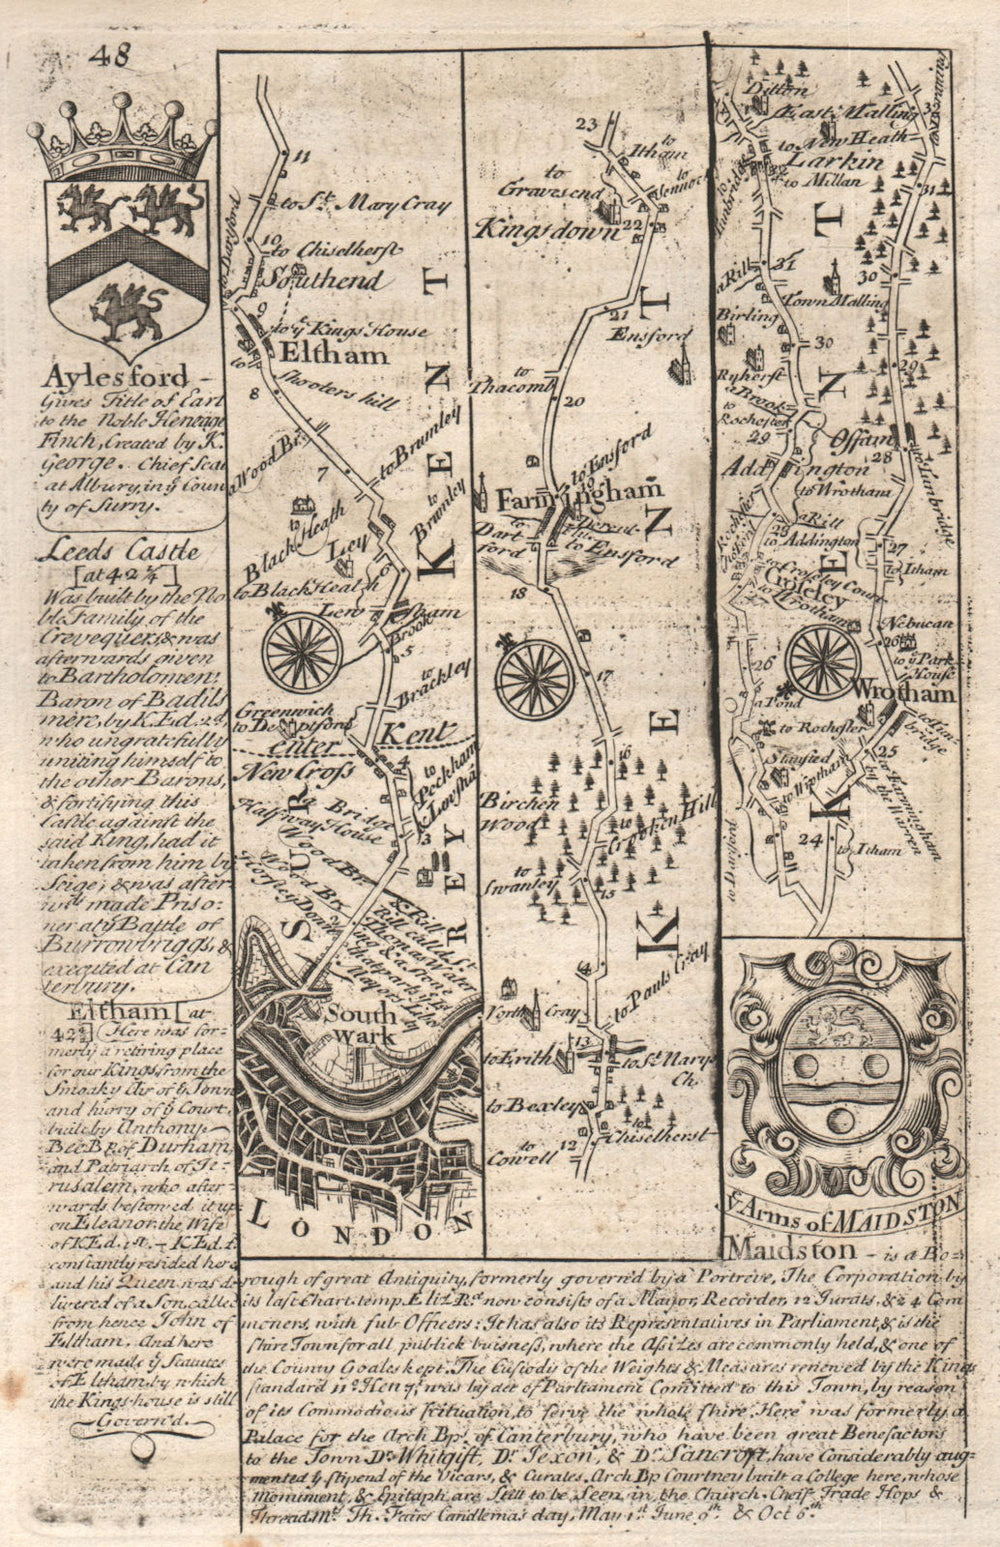 48
Aylesford -
Gives Title of Earl
to the Noble Heneage
Finch, Created by K.
George. Chief Seat
at Albury, in yͤ Coun
ty of Surry.
Leeds Castle
[at 42 ¼]
Was built by the No
ble Family of the
Crevequers & was
afterwards given
to Bartholomen:
Baron of Badils
mere, by K. Ed. 2d,
who ungratefully
uniting himself to
the other Barons,
& fortifying this
Castle against the
said King, had it
taken from him by
Seige; & was after
wͬᵈˢ made Priso:
ner at yͤ Battle of
Burrowbriggs, &
executed at Can
terbury.
Eltham [at
42¾] Here was for:
merly a retiring place
for our Kings from the
Smoaky Air of yͤ Town
and hurry of yͤ Court,
built by Anthony
Bec Bp. of Durham,
and Patriarch of Je:
rusalem, who after:
wards bestowed it up:
on Eleanor the Wife
of K Ed. 1st. – K Ed. 2
constantly resided here
and his Queen was de
livered of a Son, called
from hence John of
Eltham. And here
were made yͤ Statutes
of Eltham, by which
the Kings house is still
Govern'd.
11
to St. Mary Cray
to Dartford
10
to Chiselherst
Southend
9
to yͤ Kings House
Eltham
to
Shooters hill
8
a Wood Br.
7
to Brumley
to
Black Heath
to
Brumley
Ley
6
to Black Heath
Lewisham
Brook
5
to Brackley
Greenwich
to Deptford
enter Kent
New Cross
4
to
Peckham
& Lewsham
a Bridge
Halfway House
3
Wood Br.
Wood Br.
Horsley Down
SURREY
KENT
a Rill
Rill called St.
Thomas Water
ing & a Stone
South
wark
LONDON
23
to
Itham
to
Gravesend
to
Sennock
Kingsdown
22
21
Ensford
to
Thacomb
20
to Ensford
Farmingham
to
Dart
ford
to Ensford
18
17
16
Birchen
Wood
to
Crocken Hill
to
Swanley
15
14
to Pauls Cray
North Cray
13
to Erith
to St. Marys
Ch.
to Bexley
to
Chiselherst
12
to
Cowell
KENT
Ditton
East Malling
32
to New Heath
Larkin
to Millan
to
Tunbridge
31
31
a Rill
30
Town Malling
Birling
30
Ryherst
29
a Brook
to
Rochester
29
Offam
28
Addington
to Wrotham
to Tunbridge
a Rill
to Addington
27
to Itham
to Croseley Court
Croseley
to Wrotham
Nebucan
26
26
to yͤ Park
House
Wrotham
a Pond
to Rochester
25
Stansted
to Wrotham
to Farmingham
by the Warren
24
to Itham
to Dartford
KENT
yͤ Arms of MAIDSTON
Maidston - is a Bo:
rough of great Antiquity, formerly govern'd by a Portreve, The Corporation by
its last Chart. temp. Eliz. Rᵃᵉ now consists of a Mayor, Recorder, 12 Jurats, & 24 Com
moners, with sub Officers: It has also its Representatives in Parliament, & is the
shire Town for all publick buisness, where the Assizes are commonly held, & one of
the County Goales kept. The Custody of the Weights & Measures renewed by the Kings
standard 11º Hen 7; was by act of Parliament Comitted to this Town, by reason
of its Commodious scituation, to serve the whole shire. Here was formerly a
Palace for the Arch Bps. of Canterbury, who have been great Benefactors
to the Town Dr. Whitgift, Dr. Jexon, & Dr. Sancroft, have Considerably aug-
mented yͤ stipend of the Vicars, & Curates, Arch Bp Courtney built a College here, whose
Monument, & Epitaph are Still to be Seen in the Church. Cheif Trade Hops &
Thread. Mt. Th. Fairs Candlemas day, May 1st June 9th & Oct 6th